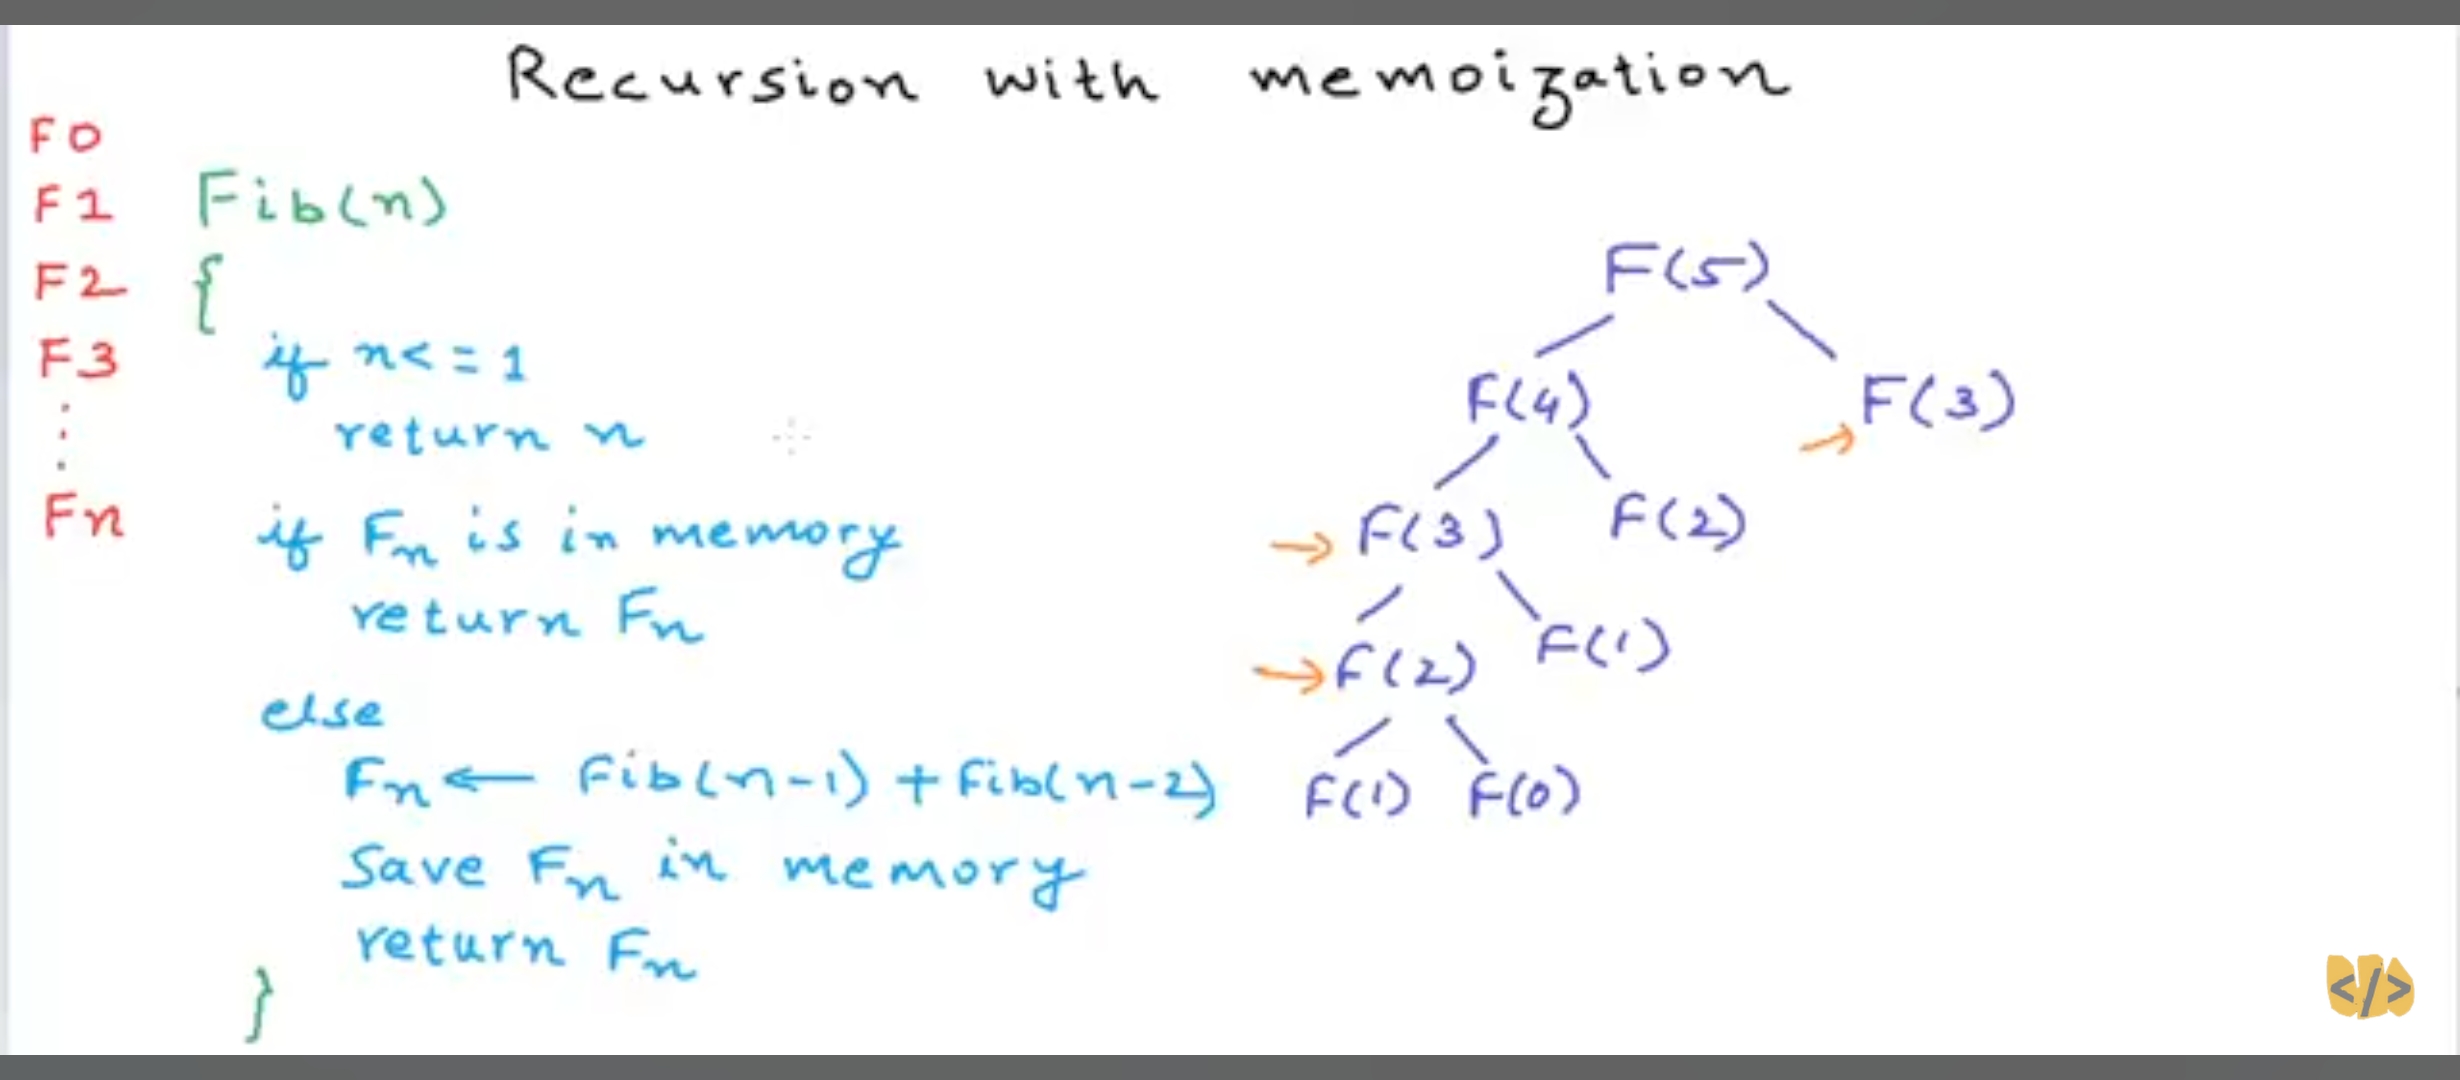 Recursion with memoization
F0
F1
F2
F3
⋮
Fn
Fib(n)
{
if n<=1
return n
if Fn is in memory
return Fn
else
Fn ← Fib(n-1) + Fib(n-2)
Save Fn in memory
return Fn
}
F(5)
F(4) → F(3)
→ F(3) F(2)
→ F(2) F(1)
F(1) F(0)
</>